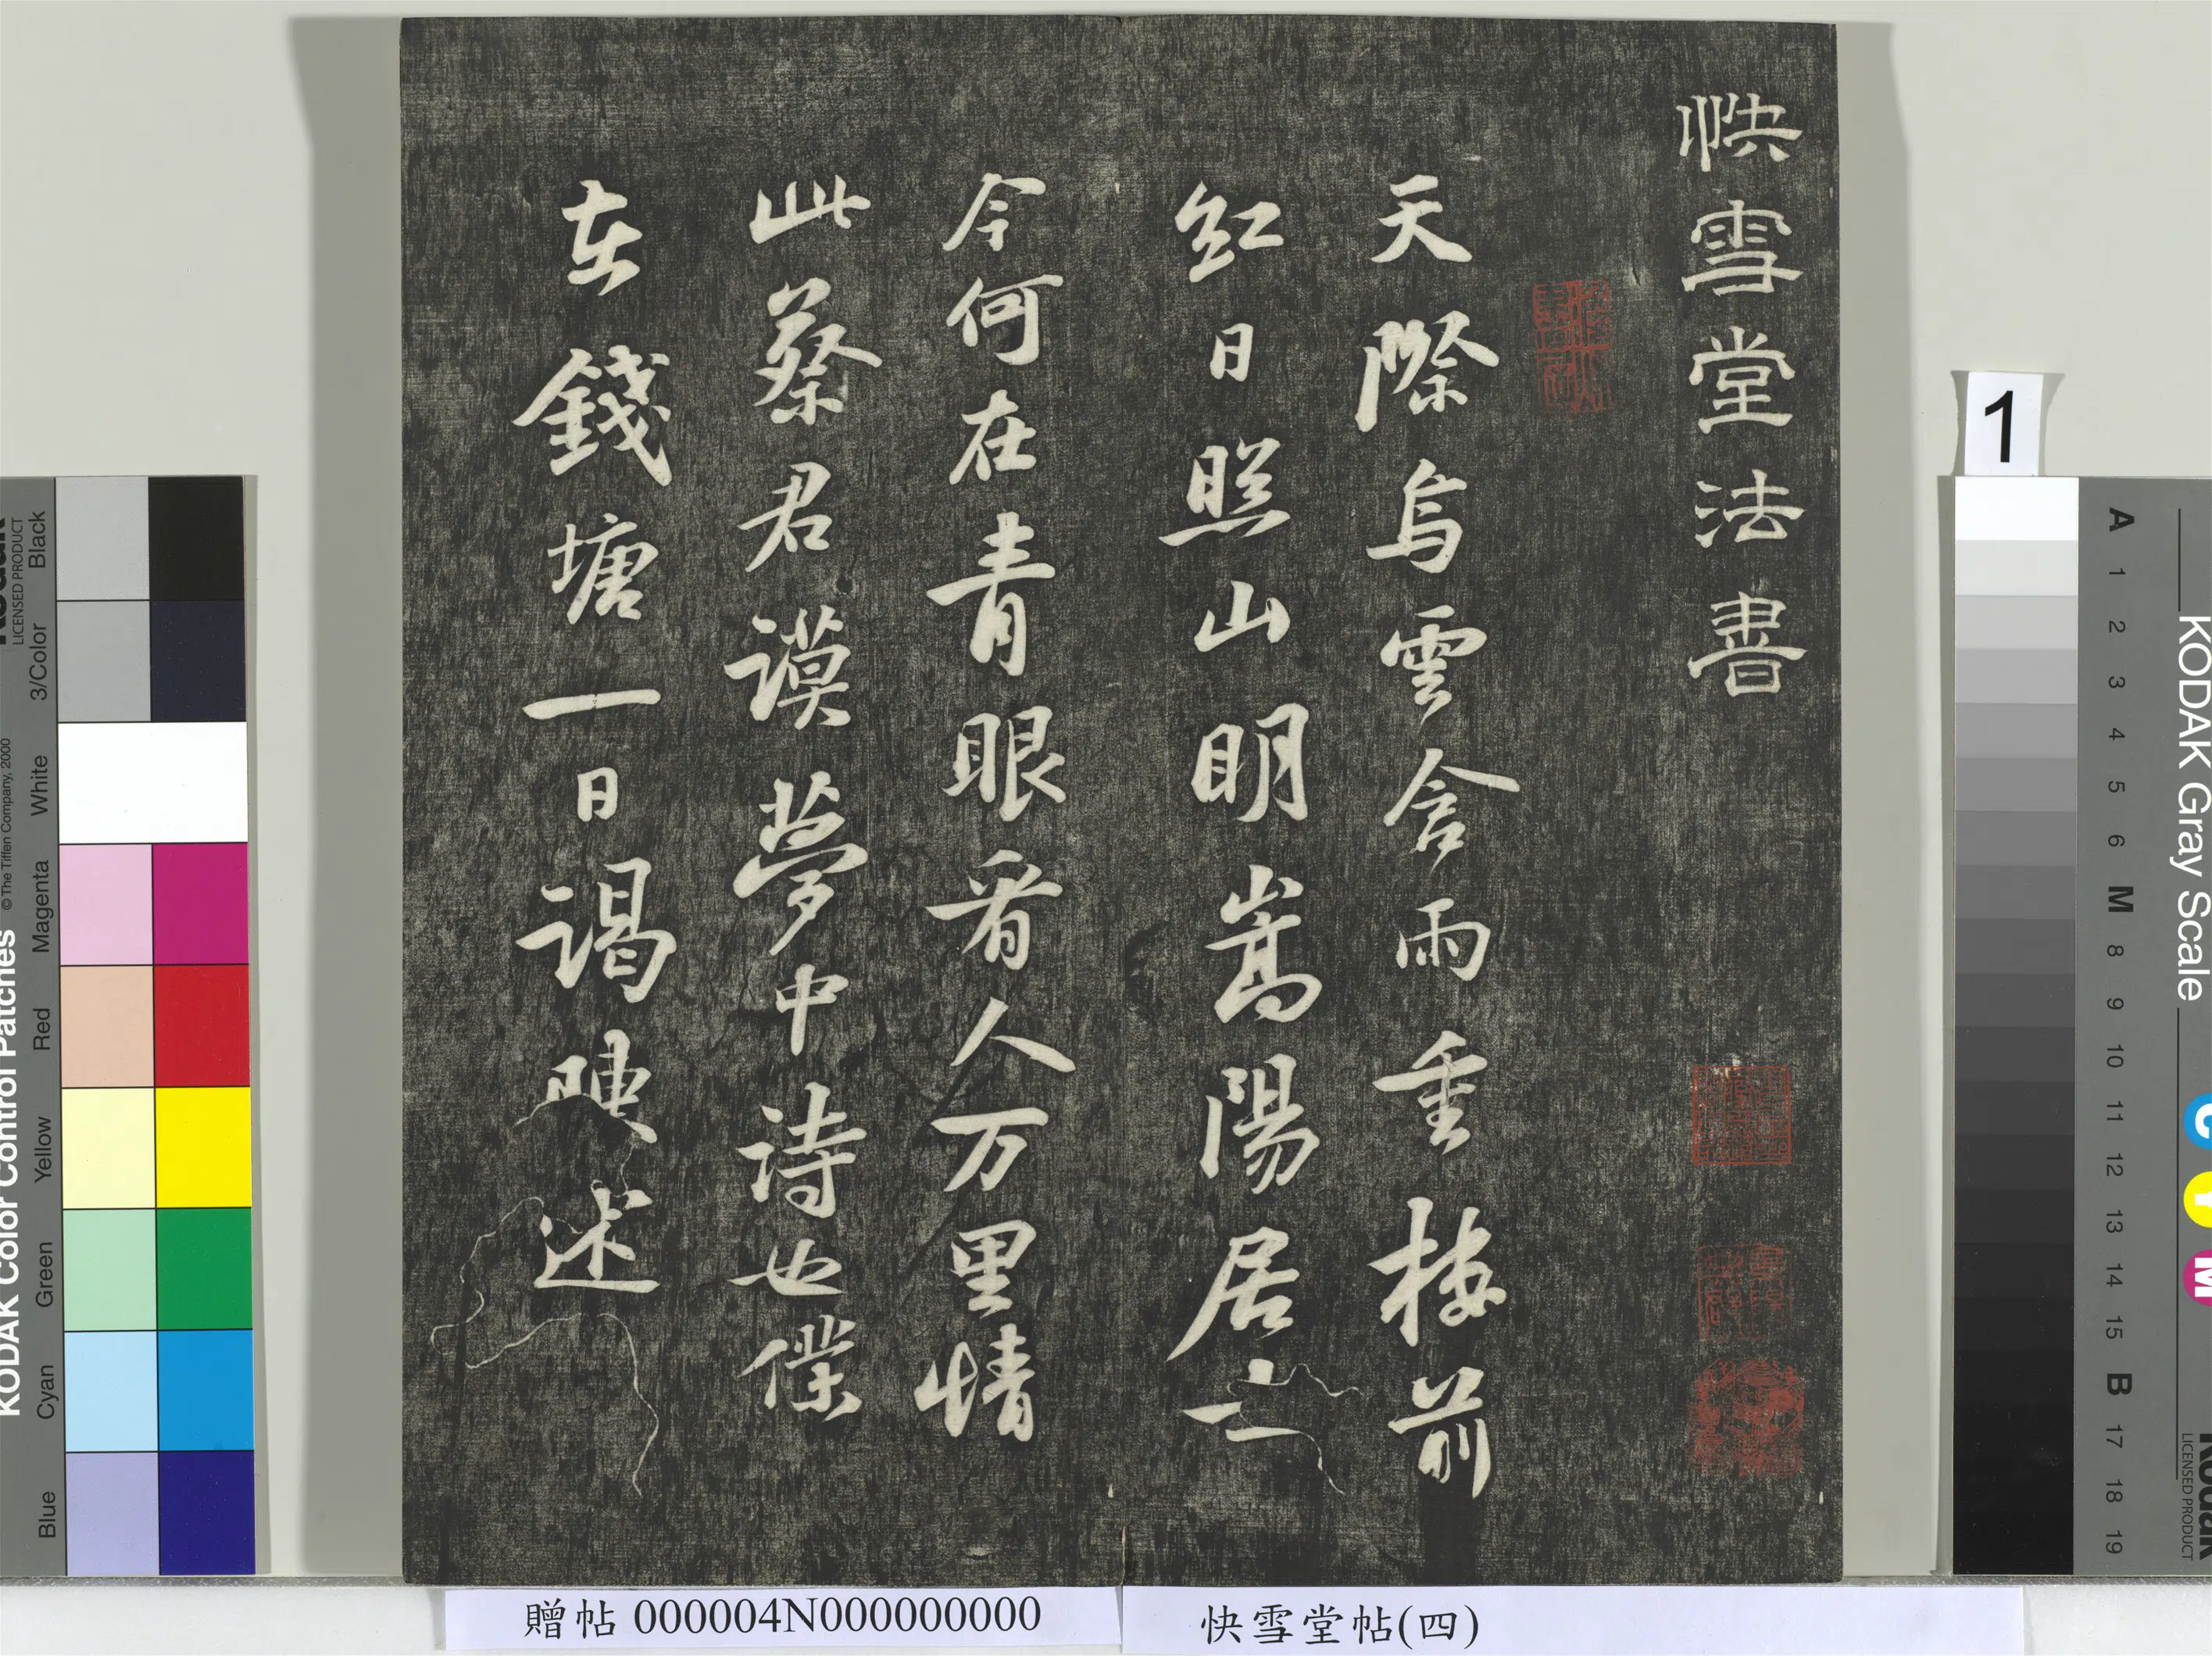 快雪堂法書
天際烏雲含雨重樓前
紅日照山明嵩陽居士
今何在青眼看人万里情
此蔡君謨夢中詩也僕
在錢塘一日謁陳述
贈帖 000004N000000000
快雪堂帖(四)
1
KODAK Color Control Patches
© The Tiffen Company, 2000
LICENSED PRODUCT
Black
3/Color
White
Magenta
Red
Yellow
Green
Cyan
Blue
KODAK Gray Scale
C Y M
Kodak
LICENSED PRODUCT
A 1 2 3 4 5 6 M 8 9 10 11 12 13 14 15 B 17 18 19